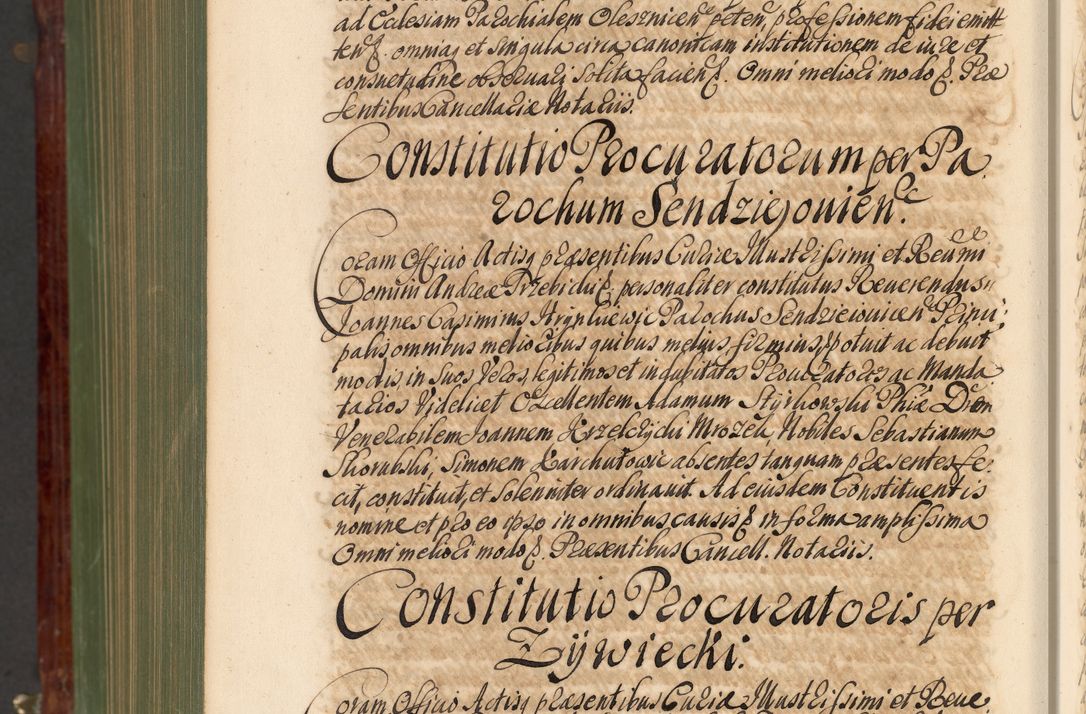 ad Ecclesiam Parochialem Olesznicen peten, professionem fidei emitt
ten & omniaq et singula circa canonicam institutionem de iure et
consuetudine observari solita facien & Omni meliori modo & Præ
sentibus Cancellariæ Notariis.
Constitutio Procuratorum per Pa,
rochum Sendzieiovien. &c
Coram Officio Actisq præsentibus Curiæ Illustrissimi et Reuñdissimi
Domini Andreæ Trzebicki & personaliter constitutus Reuerendus
Joannes Casimirus Parochus Sendzieiouicen Princi:
palis omnibus melioribus quibus melius, firmius & potuit ac debuit
modis, in suos Veros, legitimos et indubitatos Procuratores ac Manda
tarios Videlicet Excellentem Adamum Styrkowski Phiæ Drem
Venerabilem Joannem Krzelczycki Mrozek Nobiles Sebastianum
Skorubski, Simonem Karchutowic absentes tanquam præsentes fe:
cit, constituit, et solenniter ordinauit. Ad eiusdem Constituentis
nomine et pro eo ipso in omnibus causis & in forma amplissima
Omni meliori modo & Præsentibus Cancell. Notariis.
Constitutio Procuratoris per
Zÿwiecki.
Coram Officio Actisq præsentibus Curiæ Illustrissimi et Reue,